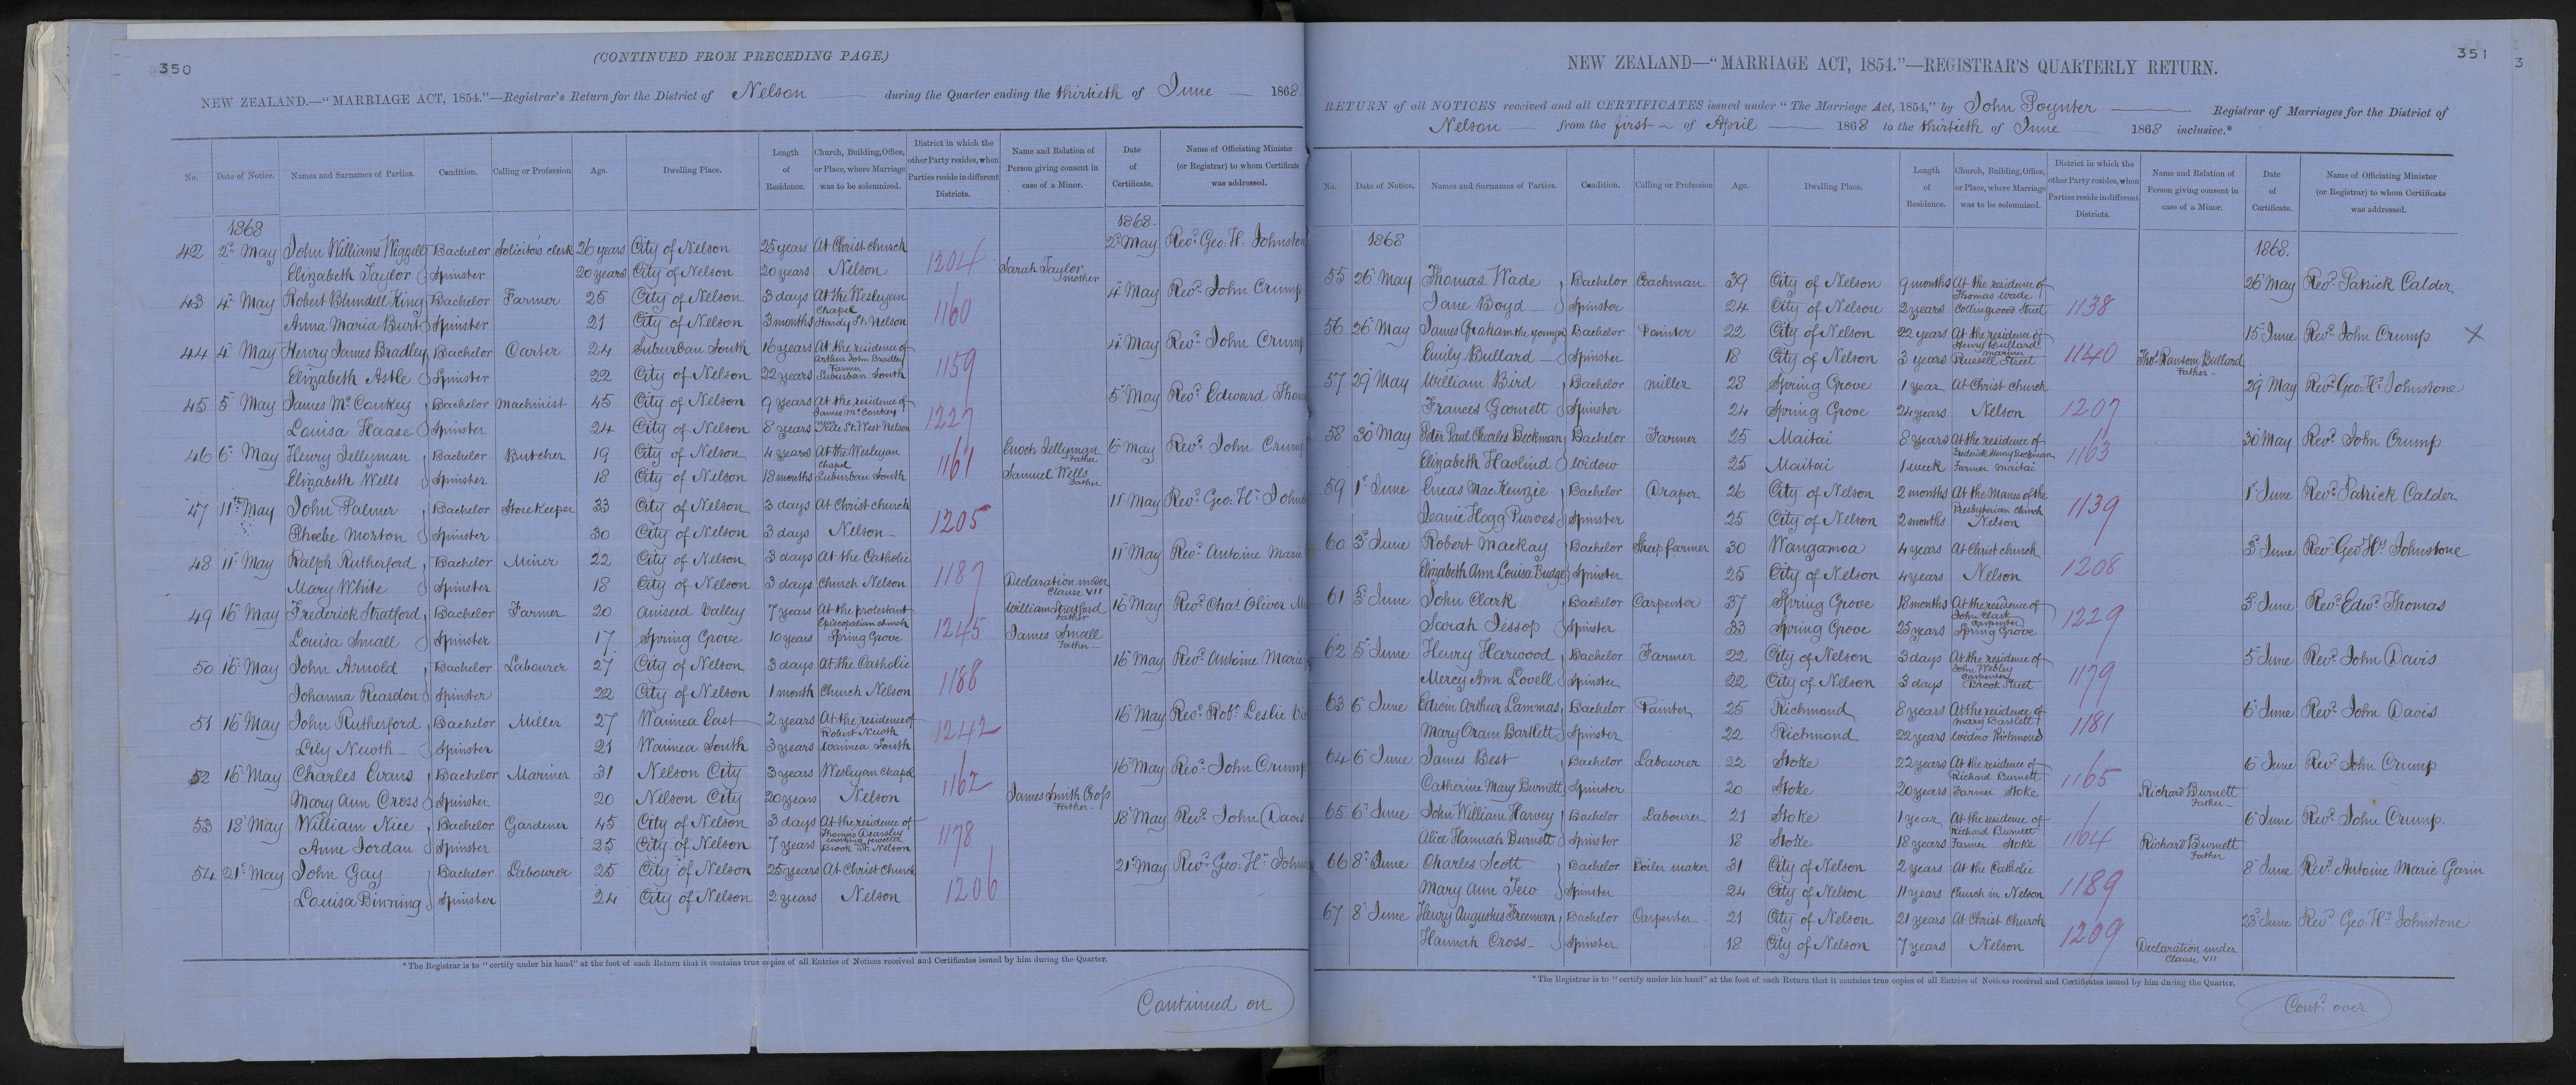 350
(CONTINUED FROM PRECEDING PAGE.)
NEW ZEALAND.—"MARRIAGE ACT, 1854."—Registrar's Return for the District of Nelson during the Quarter ending the thirtieth of June 1868.
No. Date of Notice. Names and Surnames of Parties. Condition. Calling or Profession Age. Dwelling Place. Length of Residence. Church, Building, Office, or Place, where Marriage was to be solemnized. District in which the other Party resides, when Parties reside in different Districts. Name and Relation of Person giving consent in case of a Minor. Date of Certificate. Name of Officiating Minister (or Registrar) to whom Certificate was addressed.
1868 1868.
42 2d May John Williams Wiggell Bachelor Solicitors clerk 26 years City of Nelson 25 years At Christ church 2d May Revd Geo. H. Johnston
Elizabeth Taylor Spinster 20 years City of Nelson 20 years Nelson 1204 Sarah Taylor mother
43 4th May Robert Blundell King Bachelor Farmer 25 City of Nelson 3 days At the Wesleyan Chapel 4th May Revd John Crump
Anna Maria Burt Spinster 21 City of Nelson 3 months Hardy St. Nelson 1160
44 4th May Henry James Bradley Bachelor Carter 24 Suburban South 16 years At the residence of Arthur John Bradley 4th May Revd John Crump
Elizabeth Astle Spinster 22 City of Nelson 22 years Farmer Suburban South 1159
45 5th May James McConkey Bachelor Machinist 45 City of Nelson 9 years At the residence of James McConkey 5th May Revd Edward Thom
Louisa Haase Spinster 24 City of Nelson 8 years St. West Nelson 1227
46 6th May Henry Jellyman Bachelor Butcher 19 City of Nelson 4 years At the Wesleyan chapel 1161 Enoch Jellyman Father 6th May Revd John Crump
Elizabeth Wells Spinster 18 City of Nelson 18 months Suburban South Samuel Wells Father
47 11th May John Palmer Bachelor Storekeeper 33 City of Nelson 3 days At Christ church 11th May Revd Geo. H. Johns
Phoebe Morton Spinster 30 City of Nelson 3 days Nelson 1205
48 11th May Ralph Rutherford Bachelor Miner 22 City of Nelson 3 days At the Catholic 11th May Revd Antoine Marie
Mary White Spinster 18 City of Nelson 3 days Church Nelson 1187 Declaration under Clause VII
49 16th May Frederick Stratford Bachelor Farmer 20 Aniseed Valley 7 years At the protestant Episcopalian church William Stratford Father 16th May Revd Chas Oliver M
Louisa Small Spinster 17 Spring Grove 10 years Spring Grove 1245 James Small Father
50 16th May John Arnold Bachelor Labourer 27 City of Nelson 3 days At the Catholic 16th May Revd Antoine Marie
Johanna Reardon Spinster 22 City of Nelson 1 month Church Nelson 1188
51 16th May John Rutherford Bachelor Miller 27 Waimea East 2 years At the residence of Robert Newth 16th May Revd Robt Leslie
Lily Newth Spinster 21 Waimea South 3 years Waimea South 1242
52 16th May Charles Evans Bachelor Mariner 31 Nelson City 3 years Wesleyan Chapel 16th May Revd John Crump
Mary Ann Cross Spinster 20 Nelson City 20 years Nelson 1162 James Smith Cross Father
53 18th May William Nice Bachelor Gardener 45 City of Nelson 3 days At the residence of Thomas Dearsley 18th May Revd John Davis
Anne Jordan Spinster 25 City of Nelson 7 years working jeweller Brook St. Nelson 1178
54 21st May John Gay Bachelor Labourer 25 City of Nelson 25 years At Christ Church 21st May Revd Geo. H. Johns
Louisa Binning Spinster 24 City of Nelson 2 years Nelson 1206
*The Registrar is to "certify under his hand" at the foot of each Return that it contains true copies of all Entries of Notices received and Certificates issued by him during the Quarter.
Continued on
351
3
NEW ZEALAND—"MARRIAGE ACT, 1854."—REGISTRAR'S QUARTERLY RETURN.
RETURN of all NOTICES received and all CERTIFICATES issued under "The Marriage Act, 1854," by John Poynter Registrar of Marriages for the District of
Nelson from the first of April 1868 to the thirtieth of June 1868 inclusive.*
No. Date of Notice. Names and Surnames of Parties. Condition. Calling or Profession Age. Dwelling Place. Length of Residence. Church, Building, Office, or Place, where Marriage was to be solemnized. District in which the other Party resides, when Parties reside in different Districts. Name and Relation of Person giving consent in case of a Minor. Date of Certificate. Name of Officiating Minister (or Registrar) to whom Certificate was addressed.
1868 1868.
55 26th May Thomas Wade Bachelor Coachman 39 City of Nelson 9 months At the residence of Thomas Wade 26th May Revd Patrick Calder
Jane Boyd Spinster 24 City of Nelson 2 years Collingwood Street 1138
56 26th May James Graham the younger Bachelor Painter 22 City of Nelson 22 years At the residence of Henry Bullard 15th June Revd John Crump X
Emily Bullard Spinster 18 City of Nelson 3 years mariner Russell Street 1140 Thos Ransom Bullard Father
57 29th May William Bird Bachelor miller 28 Spring Grove 1 year At Christ church 29th May Revd Geo. H. Johnstone
Frances Garnett Spinster 24 Spring Grove 24 years Nelson 1207
58 30th May Peter Paul Charles Beckman Bachelor Farmer 25 Maitai 8 years At the residence of Frederick Henry Beckman 30th May Revd John Crump
Elizabeth Havlind Widow 25 Maitai 1 week Farmer Maitai 1163
59 1st June Eneas MacKenzie Bachelor Draper 26 City of Nelson 2 months At the Manse of the Presbyterian Church 1st June Revd Patrick Calder
Jeanie Hogg Purves Spinster 25 City of Nelson 2 months Nelson 1139
60 3d June Robert Mackay Bachelor Sheep farmer 30 Wangamoa 4 years At Christ church 3d June Revd Geo. Hy Johnstone
Elizabeth Ann Louisa Budge Spinster 25 City of Nelson 4 years Nelson 1208
61 5th June John Clark Bachelor Carpenter 37 Spring Grove 18 months At the residence of John Clark 5th June Revd Edwd Thomas
Sarah Jessop Spinster 33 Spring Grove 25 years Carpenter Spring Grove 1229
62 5th June Henry Harwood Bachelor Farmer 22 City of Nelson 3 days At the residence of John Webley 5th June Revd John Davis
Mercy Ann Lovell Spinster 22 City of Nelson 3 days Carpenter Brook Street 1179
63 6th June Edwin Arthur Lammas Bachelor Painter 25 Richmond 8 years At the residence of Mary Bartlett 6th June Revd John Davis
Mary Oram Bartlett Spinster 22 Richmond 22 years Widow Richmond 1181
64 6th June James Best Bachelor Labourer 22 Stoke 22 years At the residence of Richard Burnett 6th June Revd John Crump
Catherine Mary Burnett Spinster 20 Stoke 20 years Farmer Stoke 1165 Richard Burnett Father
65 6th June John William Harvey Bachelor Labourer 21 Stoke 1 year At the residence of Richard Burnett 6th June Revd John Crump.
Alice Hannah Burnett Spinster 18 Stoke 18 years Farmer Stoke 1164 Richard Burnett Father
66 8th June Charles Scott Bachelor Boiler maker 31 City of Nelson 2 years At the Catholic 8th June Revd Antoine Marie Garin
Mary Ann Tew Spinster 24 City of Nelson 11 years Church in Nelson 1189
67 8th June Henry Augustus Freeman Bachelor Carpenter 21 City of Nelson 21 years At Christ Church 23d June Revd Geo. Hy Johnstone
Hannah Cross Spinster 18 City of Nelson 7 years Nelson 1209 Declaration under Clause VII
*The Registrar is to "certify under his hand" at the foot of each Return that it contains true copies of all Entries of Notices received and Certificates issued by him during the Quarter.
Contd over